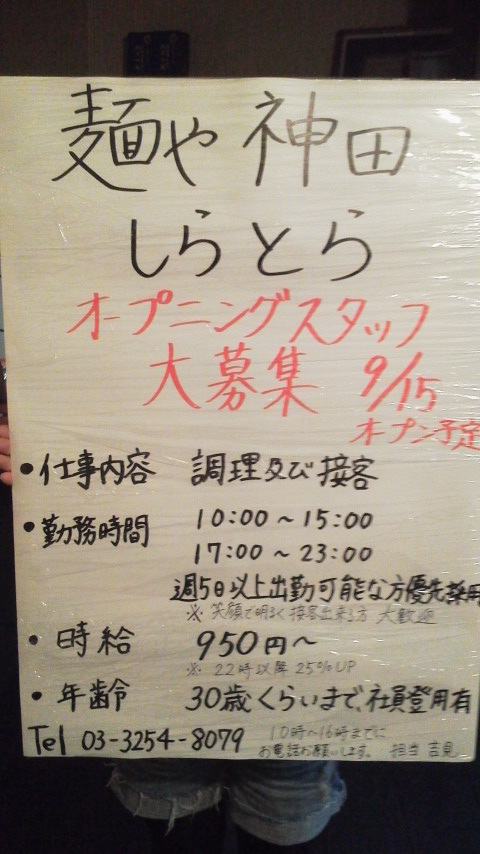 麺や 神田
しらとら
オープニングスタッフ
大募集 9/15
オープン予定
・仕事内容 調理及び接客
・勤務時間 10:00～15:00
17:00～23:00
週5日以上出勤可能な方優先採用
※笑顔で明るく接客出来る方 大歓迎
・時給 950円～
※22時以降25%UP
・年齢 30歳くらいまで、社員登用有
Tel 03-3254-8079 10時～16時までに
お電話お願いします。 担当 吉見